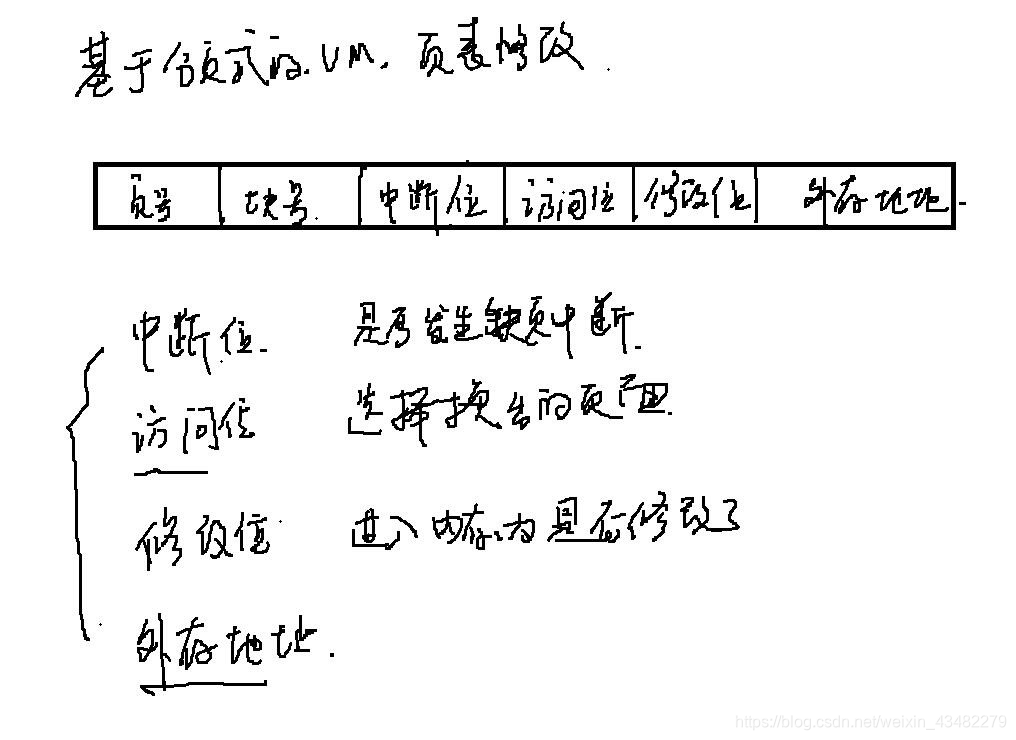 基于分页式的VM,页表修改.
页号 块号. 中断位 访问位 修改位 外存地址
中断位. 是否发生缺页中断.
访问位 选择换出的页面.
修改位 进入内存,内是否修改了
外存地址.
https://blog.csdn.net/weixin_43482279